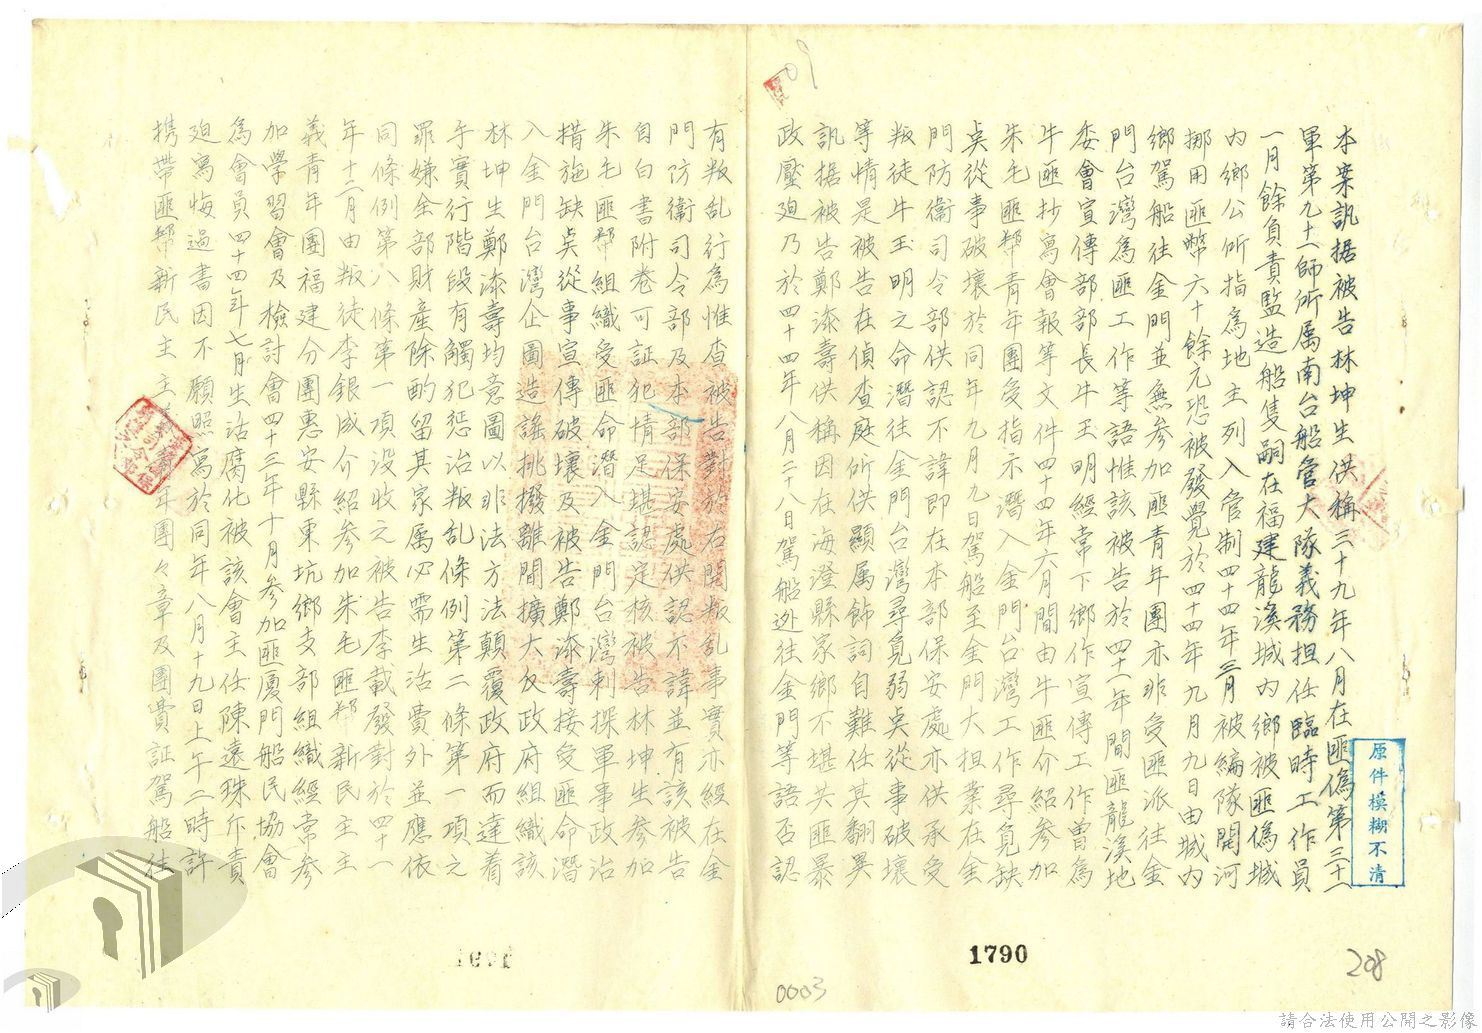 本案訊据被告林坤生供稱三十九年八月在匪偽第三十一
軍第九十一師所属南台船管大隊義務担任臨時工作員
一月餘負責監造船隻嗣在福建龍溪城内鄉被匪偽城
内鄉公所指為地主列入管制四十四年三月被編隊開河
挪用匪幣六十餘元恐被發覺於四十四年九月九日由城内
鄉駕船往金門並無參加匪青年團亦非受匪派往金
門台灣為匪工作等語惟該被告於四十一年間匪龍溪地
委會宣傳部部長牛玉明經常下鄉作宣傳工作曾為
牛匪抄寫會報等文件四十四年六月間由牛匪介紹參加
朱毛匪幫青年團受匪指示潛入金門台灣工作尋覓缺
点從事破壞於同年九月九日駕船至金門大担業在金
門防衛司令部供認不諱即在本部保安處亦供承受
叛徒牛玉明之命潛往金門台灣尋覓弱点從事破壞
等情是被告在偵查庭所供顯属飾詞自難任其翻異
訊据被告鄭漆壽供稱因在海澄縣家鄉不堪共匪暴
政壓廹乃於四十四年八月二十八日駕船逊往金門等語否認
有叛乱行為惟查被告對於右開叛乱事實亦經在金
門防衛司令部及本部保安處供認不諱並有該被告
自白書附卷可証犯情足堪認定核被告林坤生參加
朱毛匪幫組織受匪命潛入金門台灣刺探軍事政治
措施缺点從事宣傳破壞及被告鄭漆壽接受匪命潛
入金門台灣企圖造謠挑撥離間擴大反政府組織該
林坤生鄭漆壽均意圖以非法方法顛覆政府而達着
手實行階段有觸犯惩治叛乱條例第二條第一項之
罪嫌全部財產除酌留其家属必需生活費外並應依
同條例第八條第一項没收之被告李載發對於四十一
年十二月由叛徒李銀成介紹參加朱毛匪幫新民主主
義青年團福建分團惠安縣東坑鄉支部組織經常參
加學習會及檢討會四十三年十月參加匪廈門船民協會
為會員四十四年七月生活腐化被該會主任陳遠珠斥責
廹寫悔過書因不願照寫於同年八月十九日上午二時許
携帶匪幫新民主主年團々章及團費証駕船往
原件模糊不清
1790
0003
208
請合法使用公開之影像